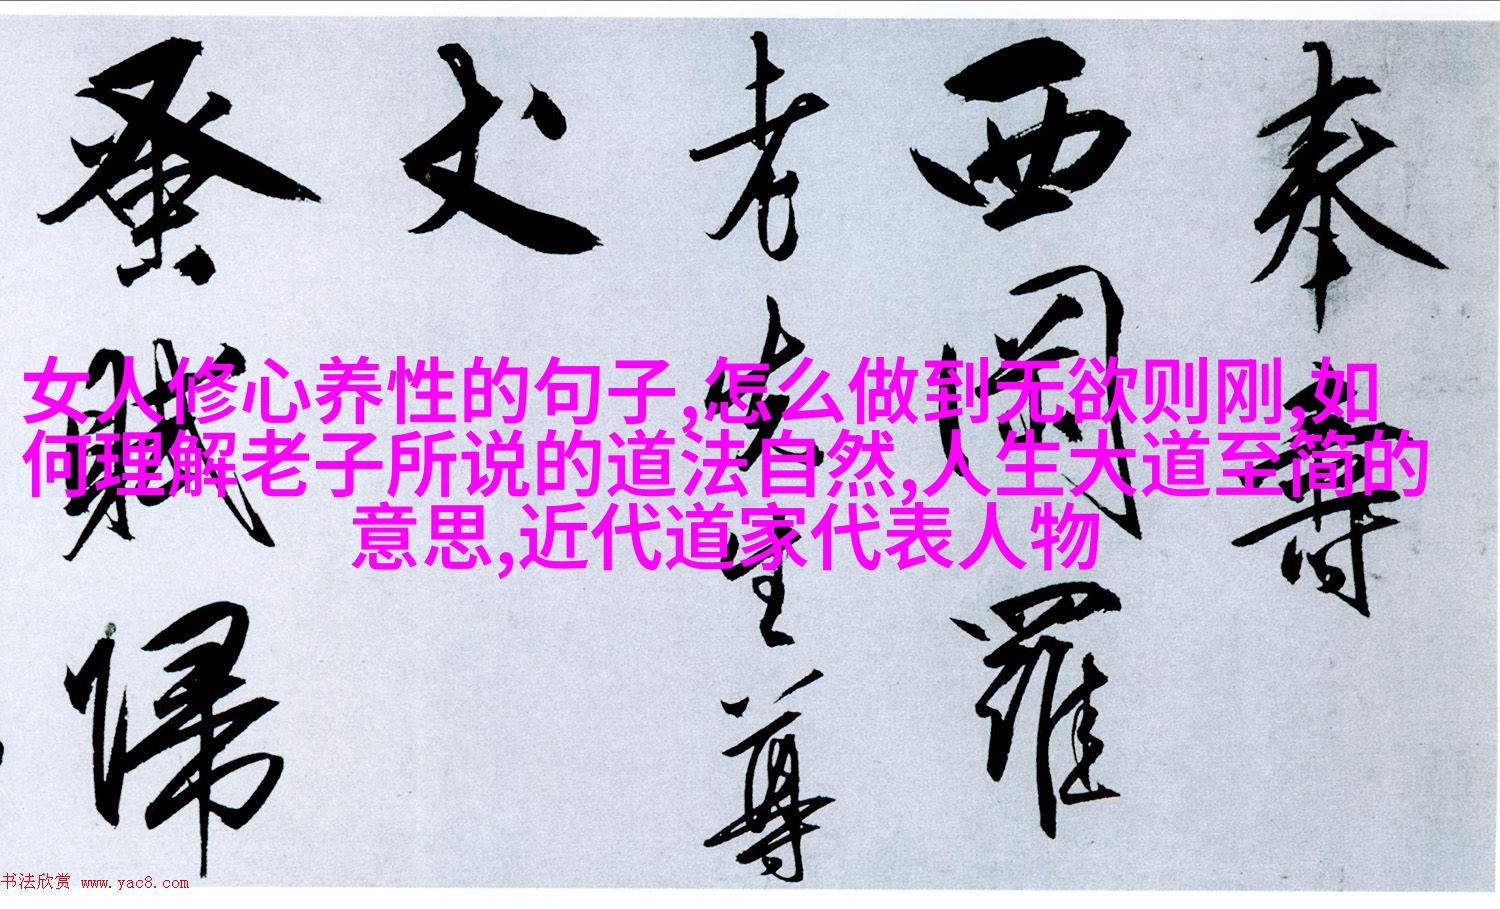 奉壽
西岡羅
老先生尊
丈
蚤賦歸
女人修心养性的句子,怎么做到无欲则刚,如
何理解老子所说的道法自然,人生大道至简的
意思,近代道家代表人物
书法欣赏 www.yac8.com